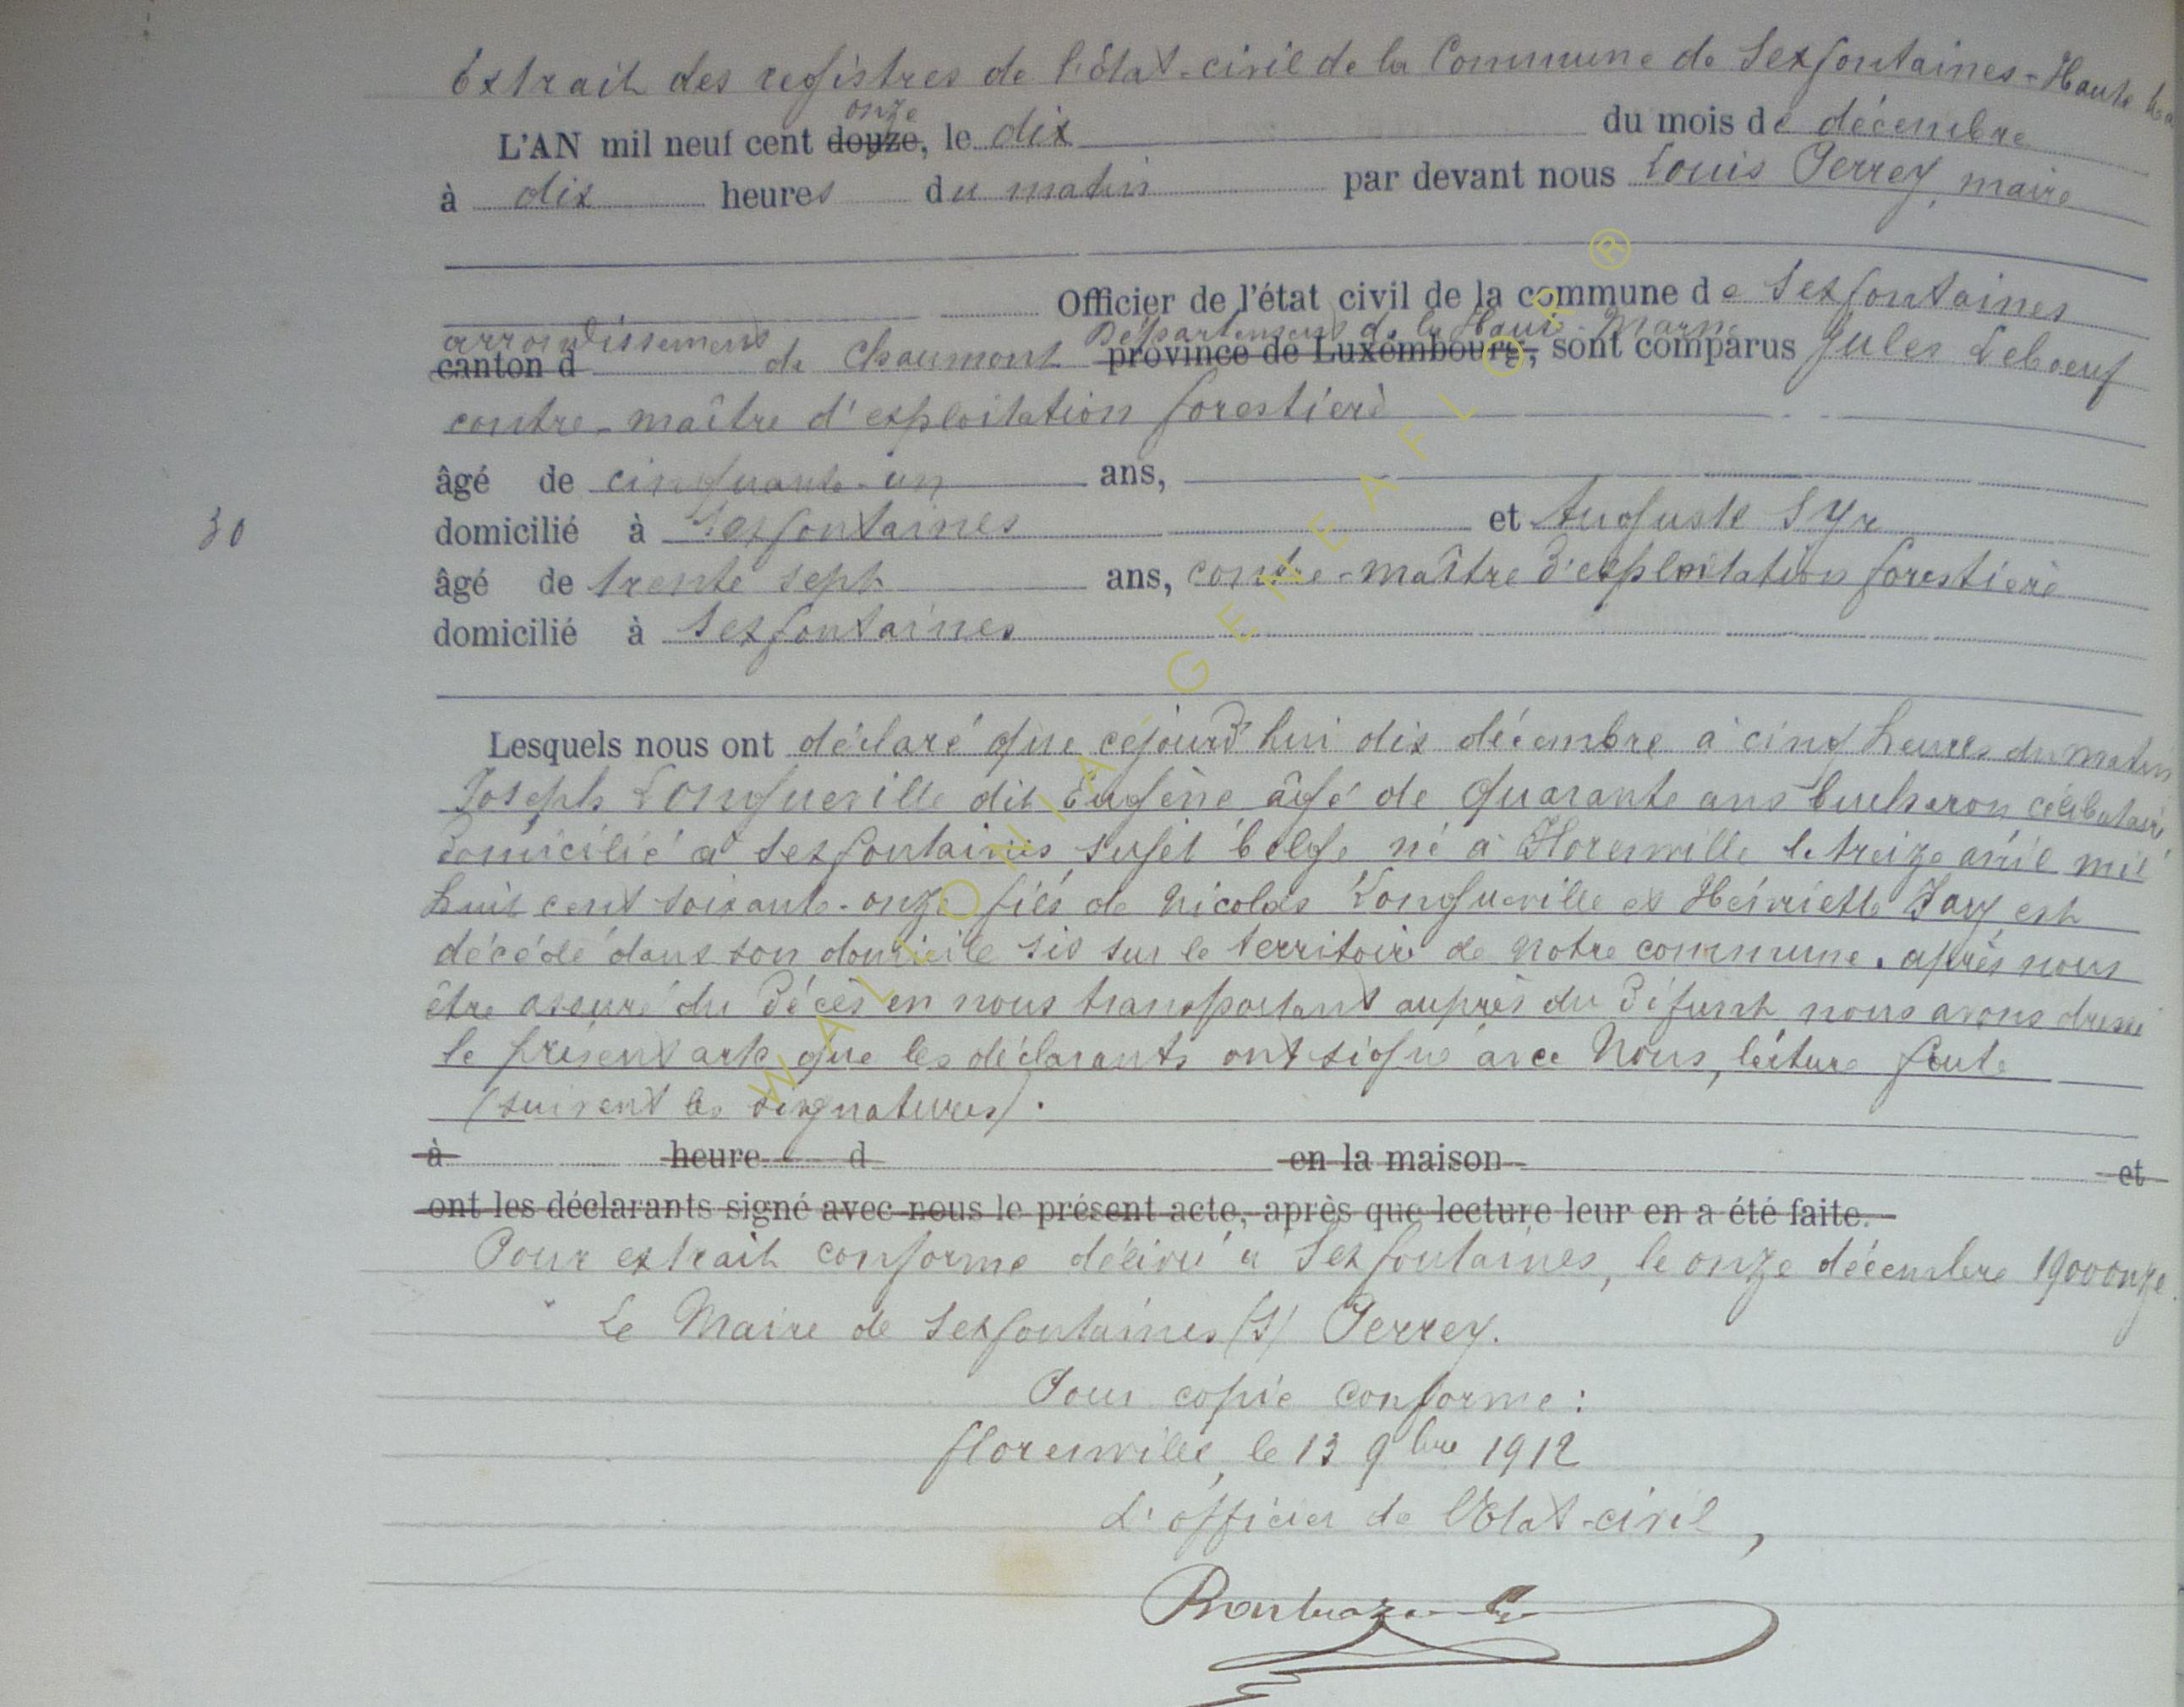 Extrait des registres de l'état-civil de la Commune de Sexfontaines - Haute
onze
L'AN mil neuf cent douze, le dix du mois de décembre
à dix heures du matin par devant nous Louis Perrey, maire
Officier de l'état civil de la commune de Sexfontaines
arrondissement Département de la Haute-Marne
canton d de Chaumont province de Luxembourg, sont comparus Jules Leboeuf
contre-maître d'exploitation forestière
âgé de cinquante-un ans,
30
domicilié à Sexfontaines et Auguste Syr
âgé de trente sept ans, contre-maître d'exploitation forestière
domicilié à Sexfontaines
Lesquels nous ont déclaré que cejourd'hui dix décembre à cinq heures du matin
Joseph Longueville dit Eugène âgé de quarante ans bucheron célibataire,
domicilié à Sexfontaines, sujet belge né à Florenville le treize avril mil
huit cent soixante-onze fils de Nicolas Longueville et Henriette est
décédé dans son domicile sis sur le territoire de notre commune. après nous
être assuré du décès en nous transportant auprès du défunt nous avons dressé
le présent acte que les déclarants ont signé avec Nous, lecture faite
(suivent les signatures).
à heure d en la maison et
ont les déclarants signé avec nous le présent acte, après que lecture leur en a été faite.
Pour extrait conforme délivré à Sexfontaines, le onze décembre 1900onze.
Le Maire de Sexfontaines (S) Perrey.
Pour copie conforme :
Florenville, le 13 9bre 1912
L'officier de l'Etat-civil,
WALLONIA GENEAFLOR ®